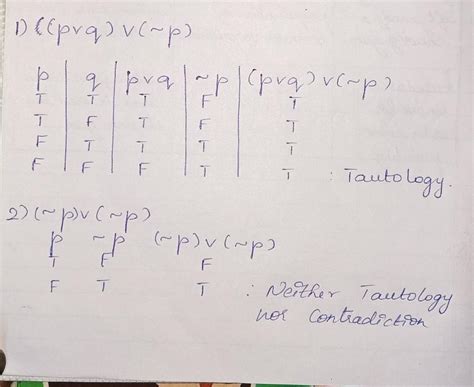 1) ((p∨q) ∨ (~p)
p q p∨q ~p (p∨q) ∨ (~p)
T T T F T
T F T F T
F T T T T
F F F T T : Tautology.
2) (~p) ∨ (~p)
p ~p (~p) ∨ (~p)
T F F
F T T : Neither Tautology
nor Contradiction